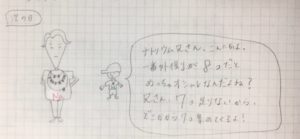 次の日
ナトリウム父さん、こんにちは。
一番外側が8つだと
めっちゃオシャレなんだよね?
父さん、7つ足りないから、
どこかから7つ集めてくるよ!